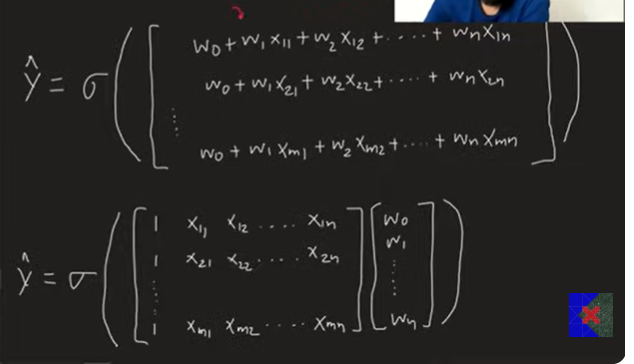 w₀ + w₁x₁₁ + w₂x₁₂ + ..... + wₙx₁ₙ
Ŷ = σ ( [ w₀ + w₁x₂₁ + w₂x₂₂ + ..... + wₙx₂ₙ ] )
⋮
w₀ + w₁xₘ₁ + w₂xₘ₂ + ..... + wₙxₘₙ
1 x₁₁ x₁₂ .... x₁ₙ w₀
w₁
Ŷ = σ ( [ 1 x₂₁ x₂₂ ..... x₂ₙ ] [ ⋮ ] )
⋮
1 xₘ₁ xₘ₂ ..... xₘₙ wₙ